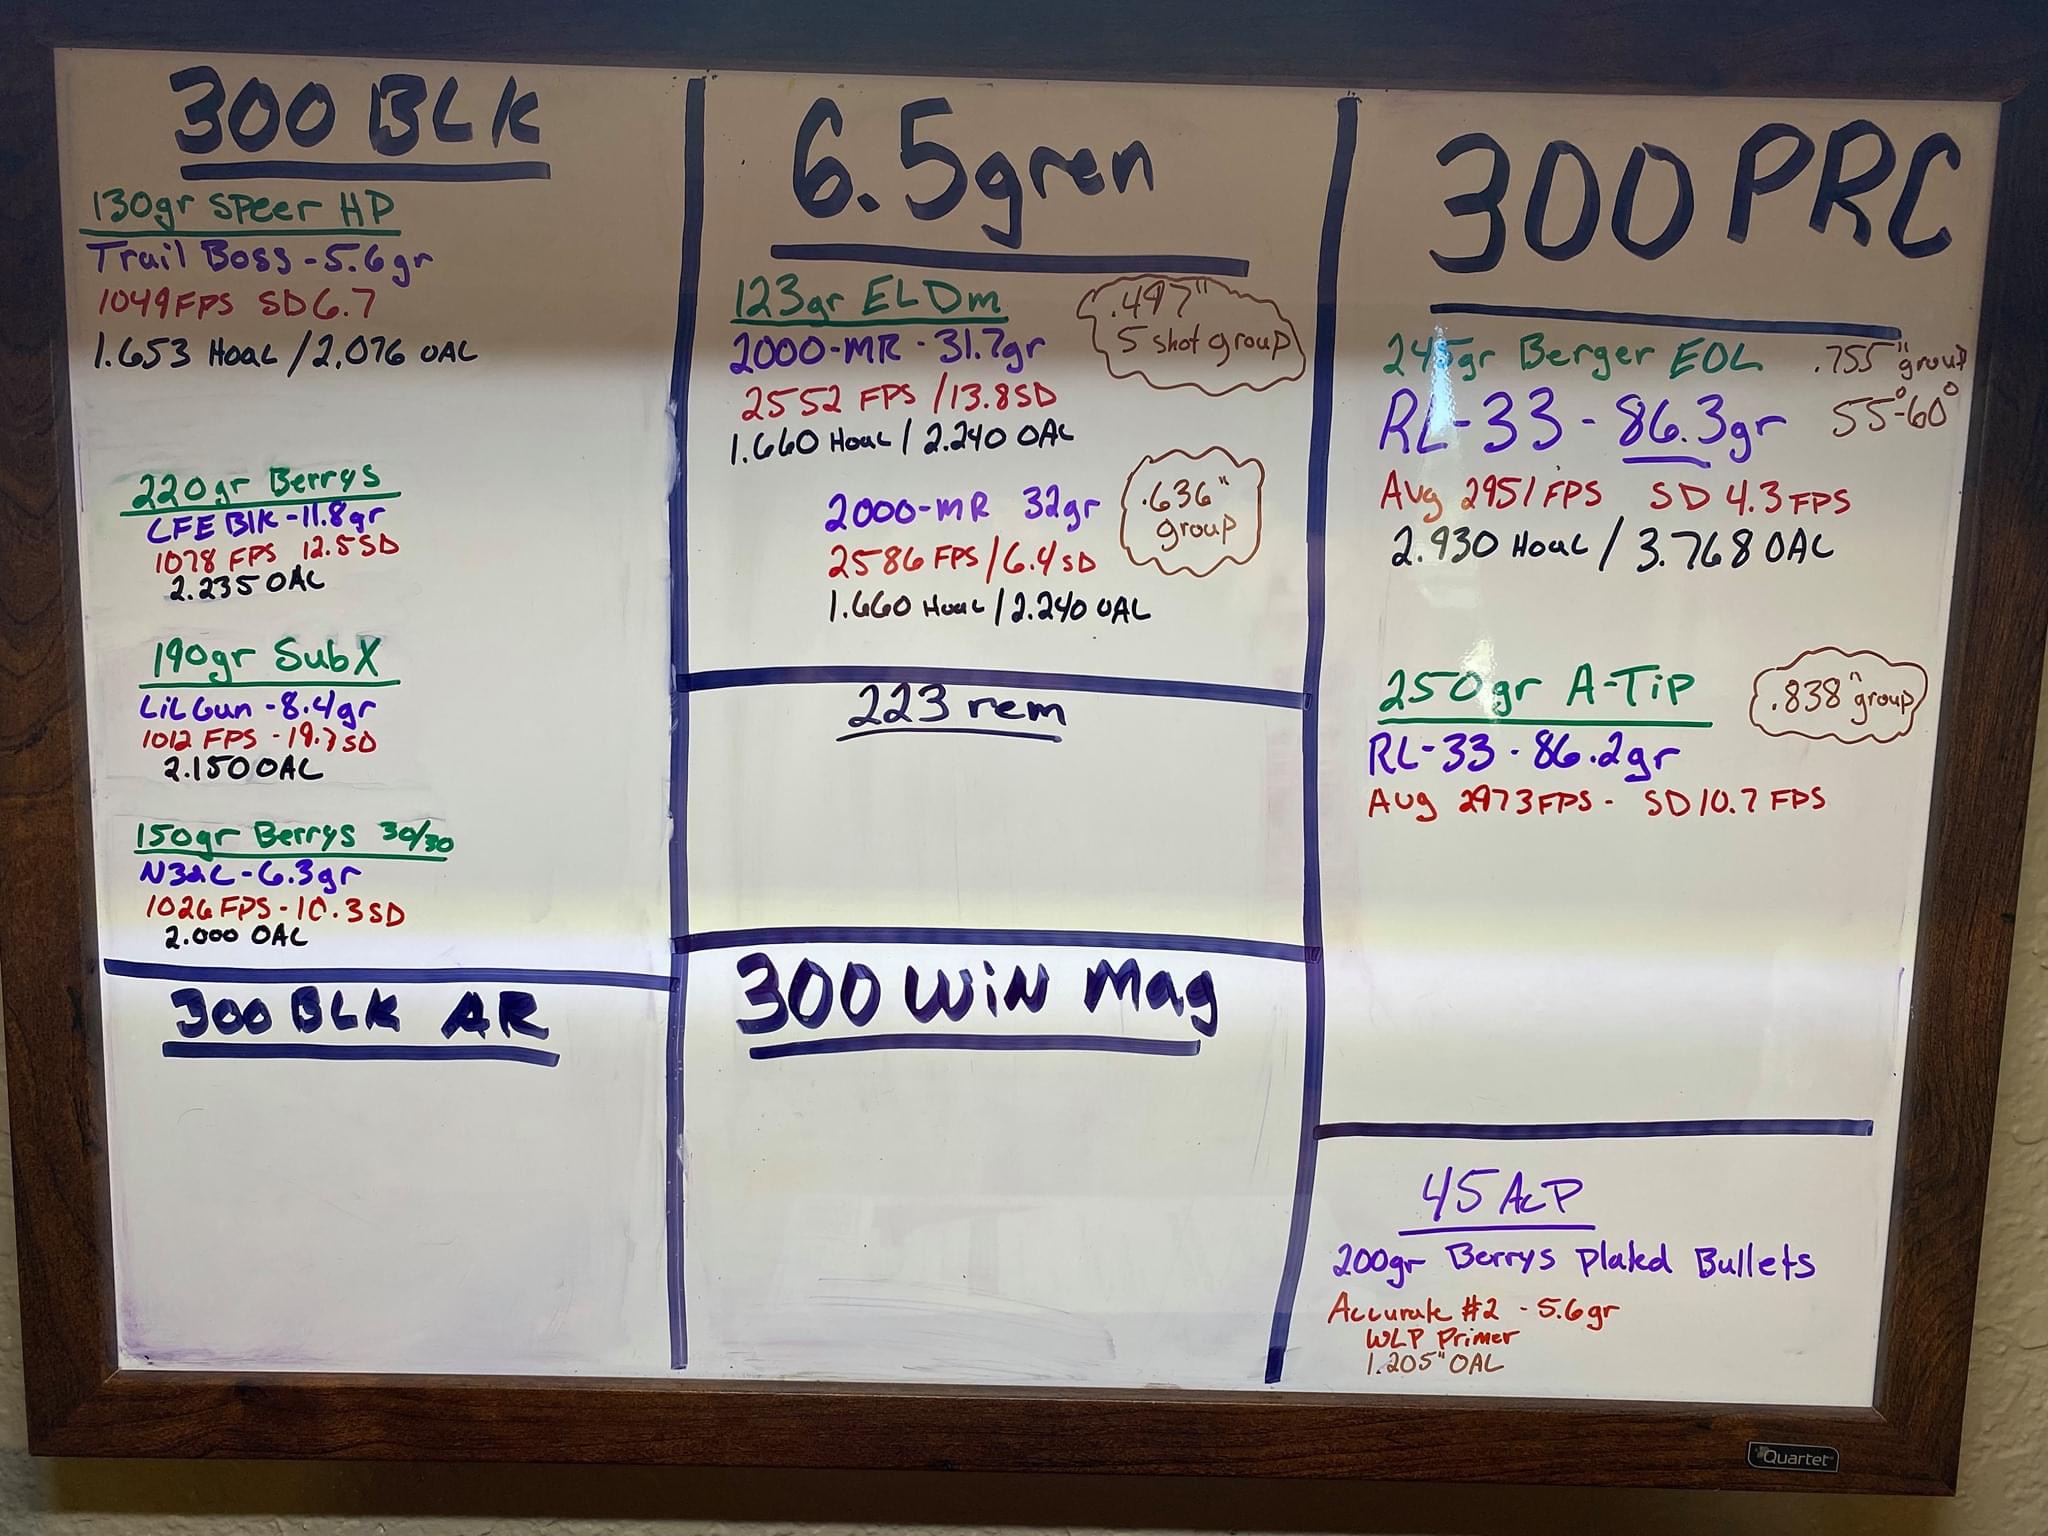 300 BLK
130gr Speer HP
Trail Boss - 5.6gr
1049 FPS SD 6.7
1.653 HOAL / 2.076 OAL
220gr Berrys
CFE Blk - 11.8gr
1078 FPS 12.5 SD
2.235 OAL
190gr SubX
LiL Gun - 8.4gr
1012 FPS - 19.7 SD
2.150 OAL
150gr Berrys 30/30
N32C - 6.3gr
1026 FPS - 10.3 SD
2.000 OAL
300 BLK AR
6.5gren
123gr ELDm
.497"
5 shot group
2000-MR - 31.7gr
2552 FPS / 13.8 SD
1.660 HOAL / 2.240 OAL
2000-MR 32gr
.636"
group
2586 FPS / 6.4 SD
1.660 HOAL / 2.240 OAL
223 rem
300 WiN Mag
300 PRC
245gr Berger EOL
.755" group
RL-33 - 86.3gr
55°-60°
Avg 2951 FPS SD 4.3 FPS
2.930 HOAL / 3.768 OAL
250gr A-Tip
.838" group
RL-33 - 86.2gr
Avg 2973 FPS - SD 10.7 FPS
45 ACP
200gr Berrys Plated Bullets
Accurate #2 - 5.6gr
WLP Primer
1.205" OAL
Quartet